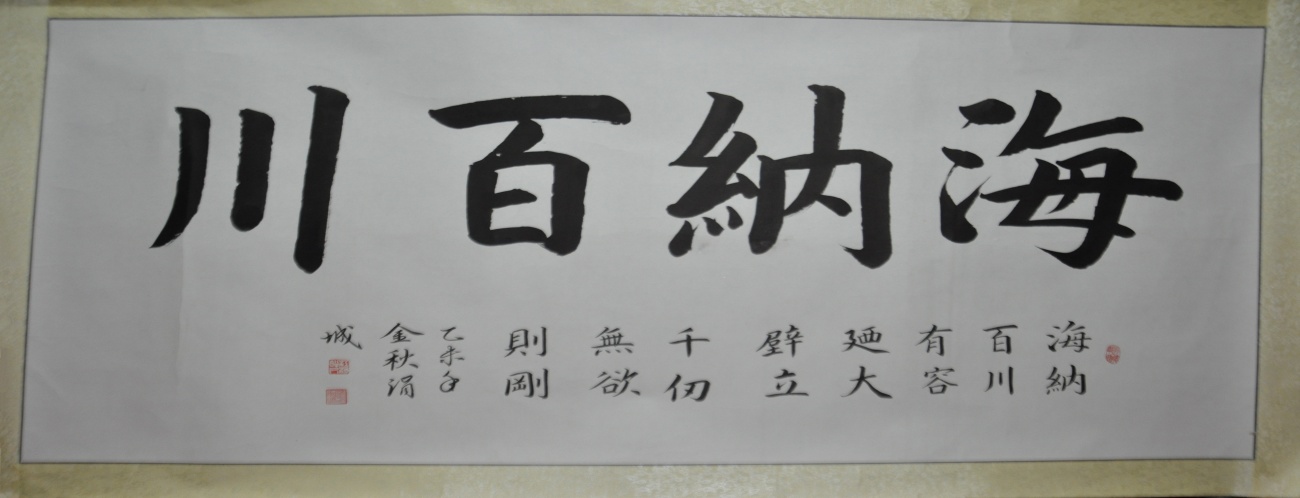 海納百川
海納
百川
有容
廼大
壁立
千仞
無欲
則剛
乙未年
金秋涓
城